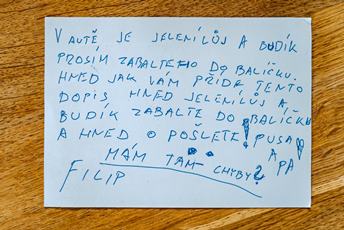 V AUTĚ JE JELENÍLŮJ A BUDÍK
PROSÍM ZABALTEHO DO BALÍČKU.
HNED JAK VÁM PŘÍDE TENTO
DOPIS HNED JELENÍLŮJ A
BUDÍK ZABALTE DO BALÍČKU
A HNED O POŠLETE! PUSA
A PÁ!
MÁM TAM CHYBY?
FILIP